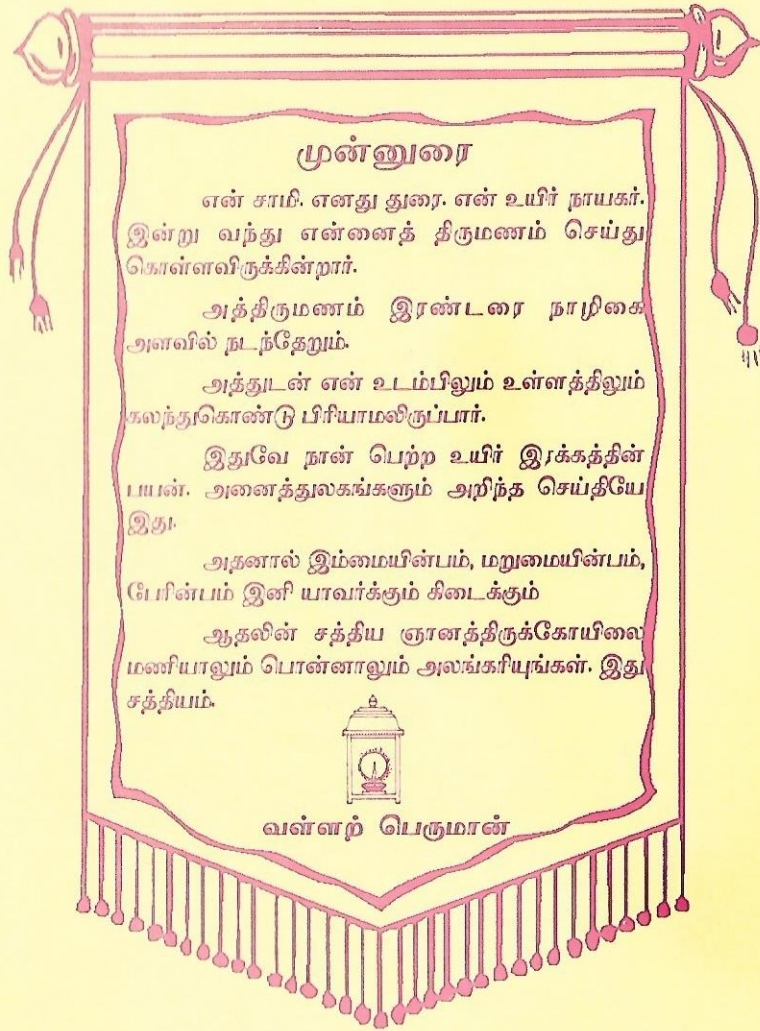 முன்னுரை
என் சாமி. எனது துரை. என் உயிர் நாயகர்.
இன்று வந்து என்னைத் திருமணம் செய்து
கொள்ளவிருக்கின்றார்.
அத்திருமணம் இரண்டரை நாழிகை
அளவில் நடந்தேறும்.
அத்துடன் என் உடம்பிலும் உள்ளத்திலும்
கலந்துகொண்டு பிரியாமலிருப்பார்.
இதுவே நான் பெற்ற உயிர் இரக்கத்தின்
பயன். அனைத்துலகங்களும் அறிந்த செய்தியே
இது.
அதனால் இம்மையின்பம், மறுமையின்பம்,
பேரின்பம் இனி யாவர்க்கும் கிடைக்கும்
ஆதலின் சத்திய ஞானத்திருக்கோயிலை
மணியாலும் பொன்னாலும் அலங்கரியுங்கள். இது
சத்தியம்.
வள்ளற் பெருமான்